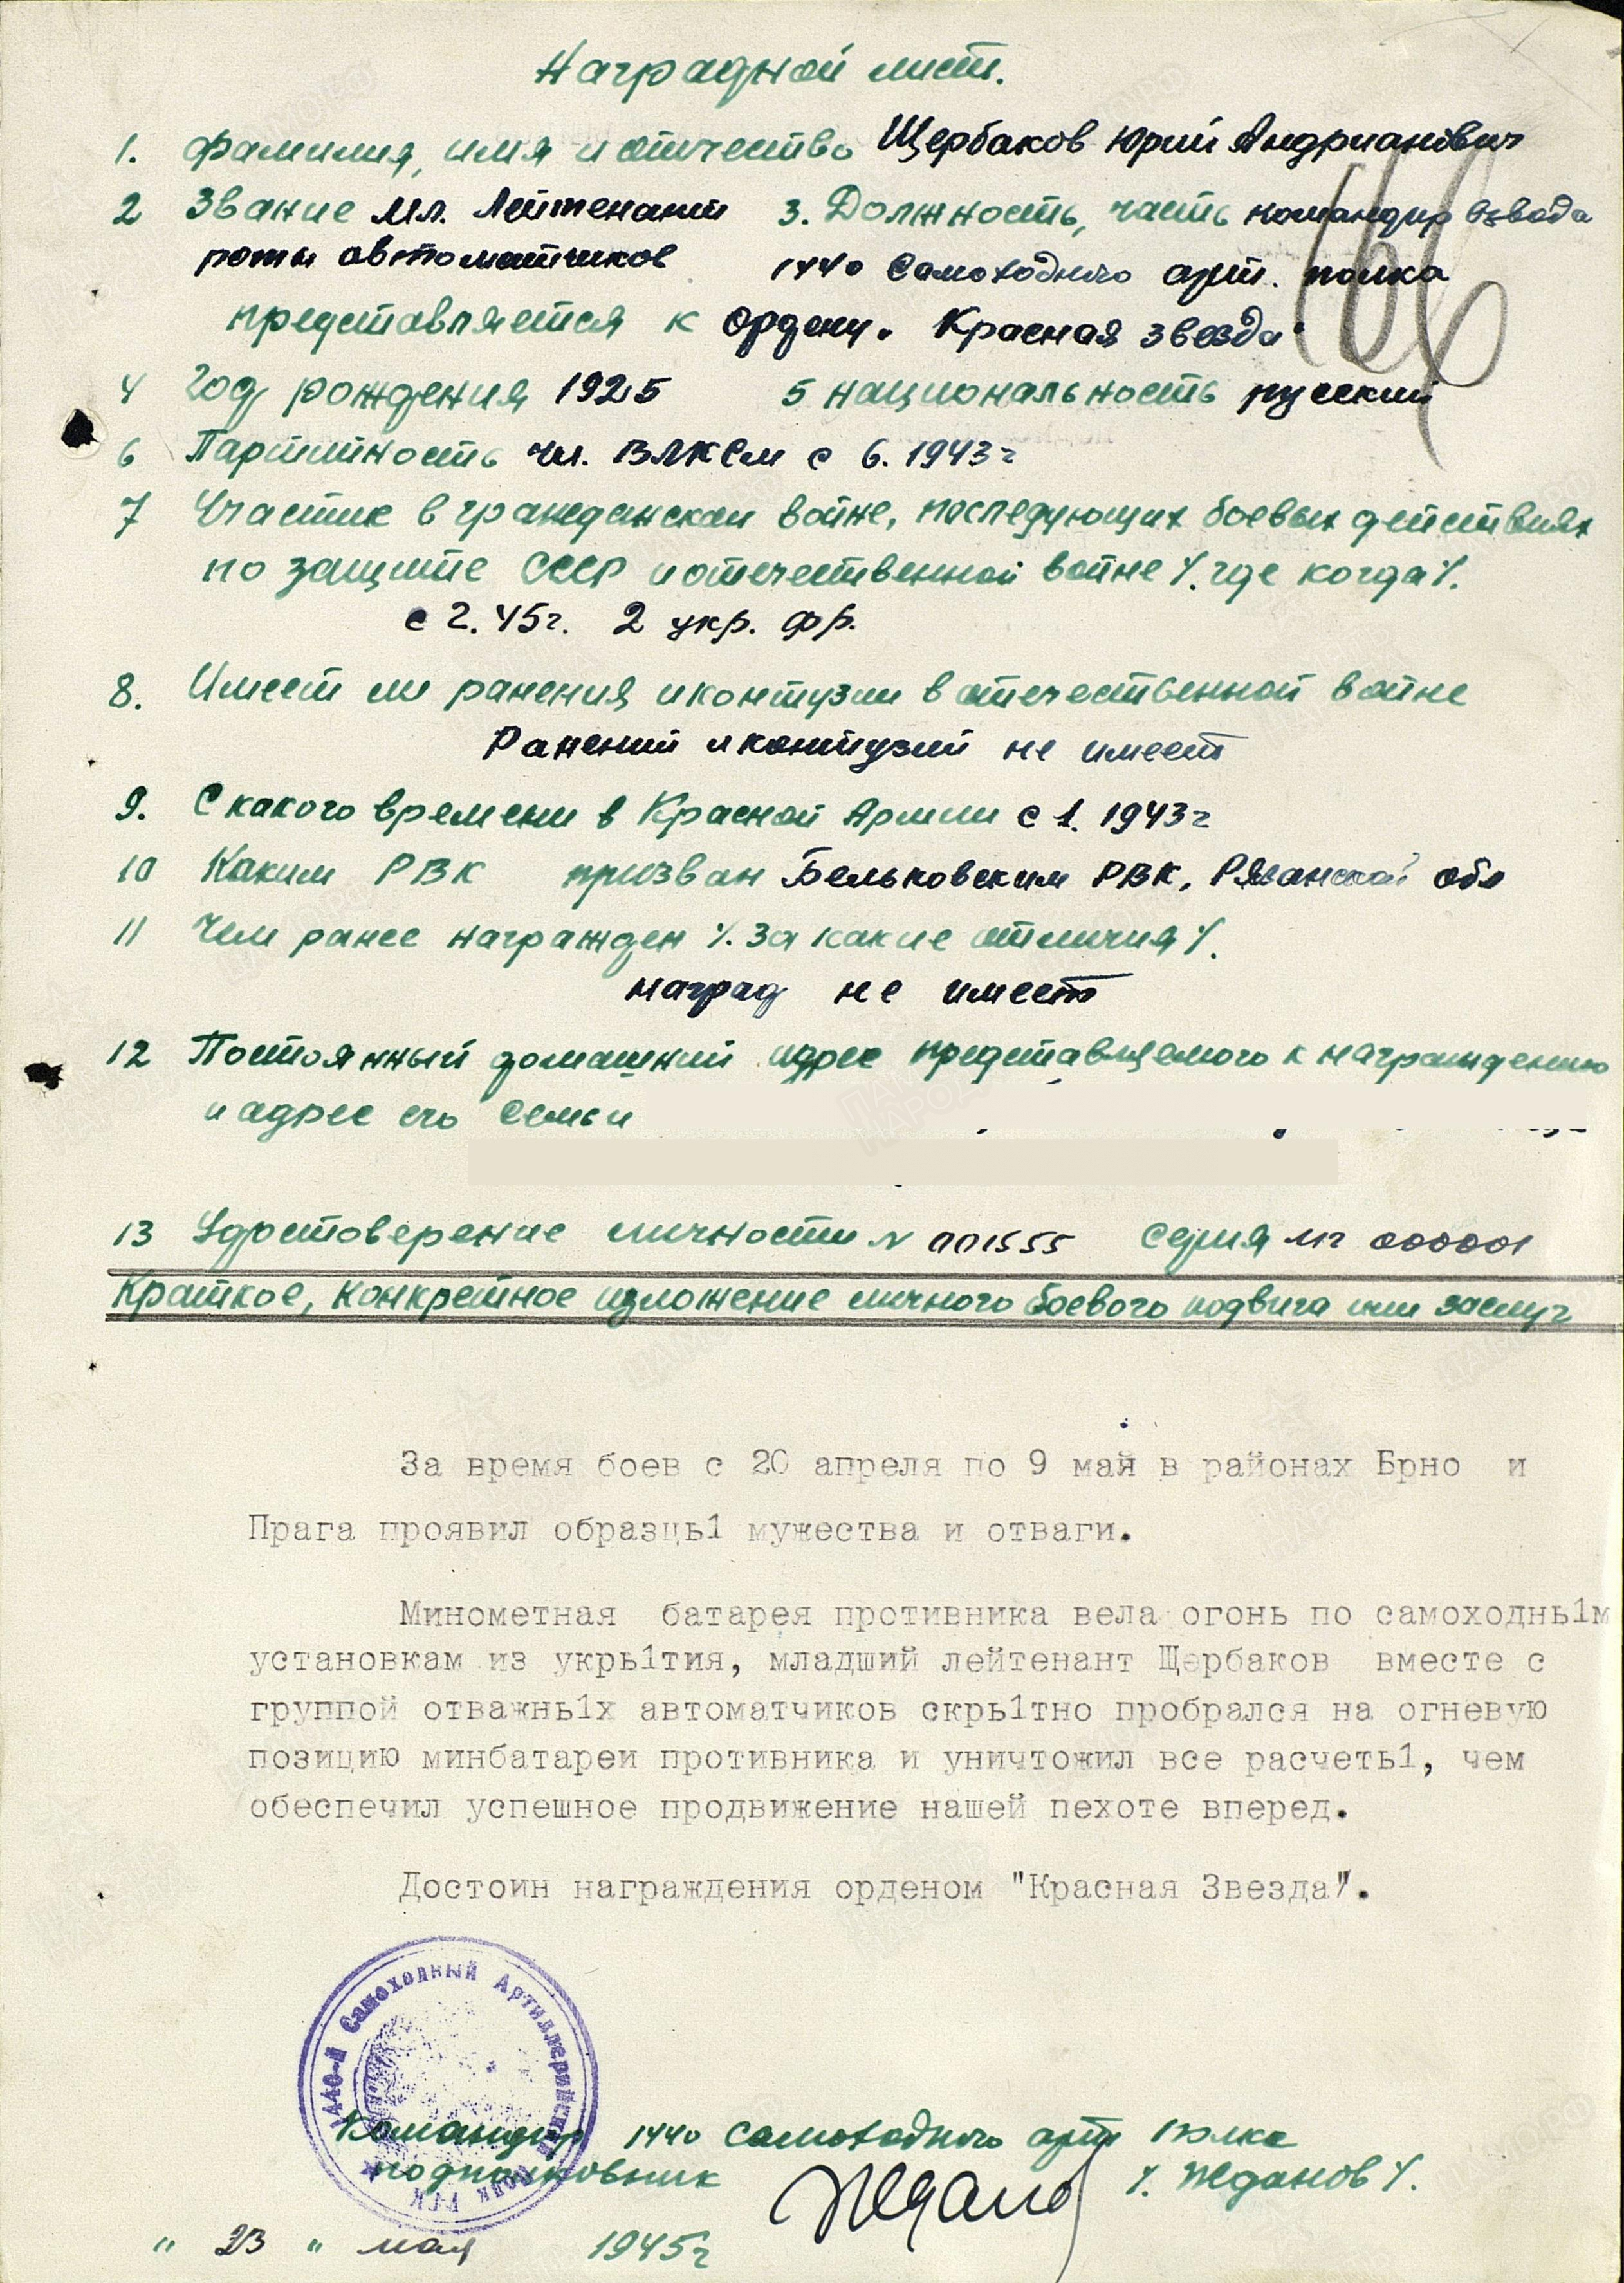 Наградной лист.
1. Фамилия, имя и отчество Щербаков Юрий Андрианович
2 Звание Мл. Лейтенант 3. Должность, часть командир взвода
роты автоматчиков 1440 Самоходного арт. полка
представляется к ордену „Красная звезда"
4 Год рождения 1925 5 национальность русский
6 Партитность чл. ВЛКСМ с 6. 1943г
7 Участие в гражданской войне, последующих боевых действиях
по защите СССР и отечественной войне /. где когда /.
с 2. 45г. 2 укр. фр.
8. Имеет ли ранения и контузии в отечественной войне
Ранений и контузий не имеет
9. С какого времени в Красной Армии с 1. 1943г
10 Каким РВК призван Бельковским РВК, Рязанской обл
11 Чем ранее награжден /. За какие отличия /.
наград не имеет
12 Постоянный домашний адрес представляемого к награждению
и адрес его семьи
13 Удостоверение личности N 001555 серия МГ 000001
Краткое, конкретное изложение личного боевого подвига или заслуг
За время боев с 20 апреля по 9 май в районах Брно и
Прага проявил образць1 мужества и отваги.
Минометная батарея противника вела огонь по самоходнь1м
установкам из укрь1тия, младший лейтенант Щербаков вместе с
группой отважнь1х автоматчиков скрь1тно пробрался на огневую
позицию минбатареи противника и уничтожил все расчеть1, чем
обеспечил успешное продвижение нашей пехоте вперед.
Достоин награждения орденом "Красная Звезда".
1440-й Самоходный Артиллерийский Полк РГК
Командир 1440 самоходного арт полка
подполковник Жданов /. Жданов /.
" 23 " мая 1945г